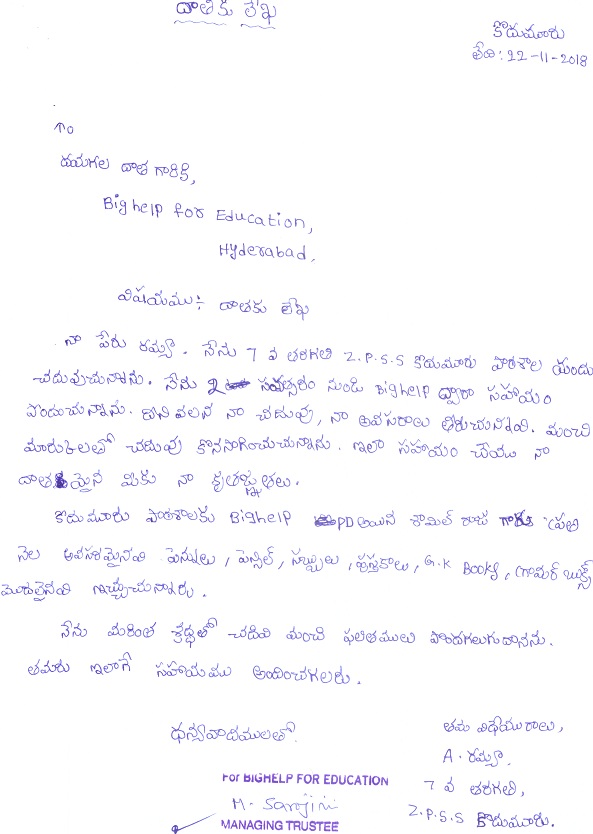 దాతకు లేఖ
కొడుమూరు
తేది: 22-11-2018
To
దయగల దాత గారికి,
Bighelp for Education,
Hyderabad,
విషయము:- దాతకు లేఖ
నా పేరు రమ్యా. నేను 7 వ తరగతి Z.P.S.S కొడుమూరు పాఠశాల యందు
చదువుచున్నాను. నేను 2 సంవత్సరం నుండి Bighelp ద్వారా సహాయం
పొందుచున్నాను. దీని వలన నా చదువు, నా అవసరాలు తీరుచున్నవి. మంచి
మారుకులతో చదువు కొనసాగించుచున్నాను. ఇలా సహాయం చేయు నా
దాతయైన మీకు నా కృతజ్ఞతలు.
కొడుమూరు పాఠశాలకు Bighelp PD అయిన శామిల్ రాజు గారు ప్రతి
నెల అవసరమైనవి పెన్నులు, పెన్సిల్, సబ్బులు, పుస్తకాలు, G.K Books, గ్రామర్ బుక్స్
మొదలైనవి ఇచ్చుచున్నారు.
నేను మరింత శ్రద్ధతో చదివి మంచి ఫలితములు పొందగలుగుదానను.
తమరు ఇలాగే సహాయము అందించగలరు.
ధన్యవాదములతో.
తమ విధేయురాలు,
A. రమ్యా.
7 వ తరగతి,
Z.P.S.S కొడుమూరు.
For BIGHELP FOR EDUCATION
M. Sarojini
MANAGING TRUSTEE